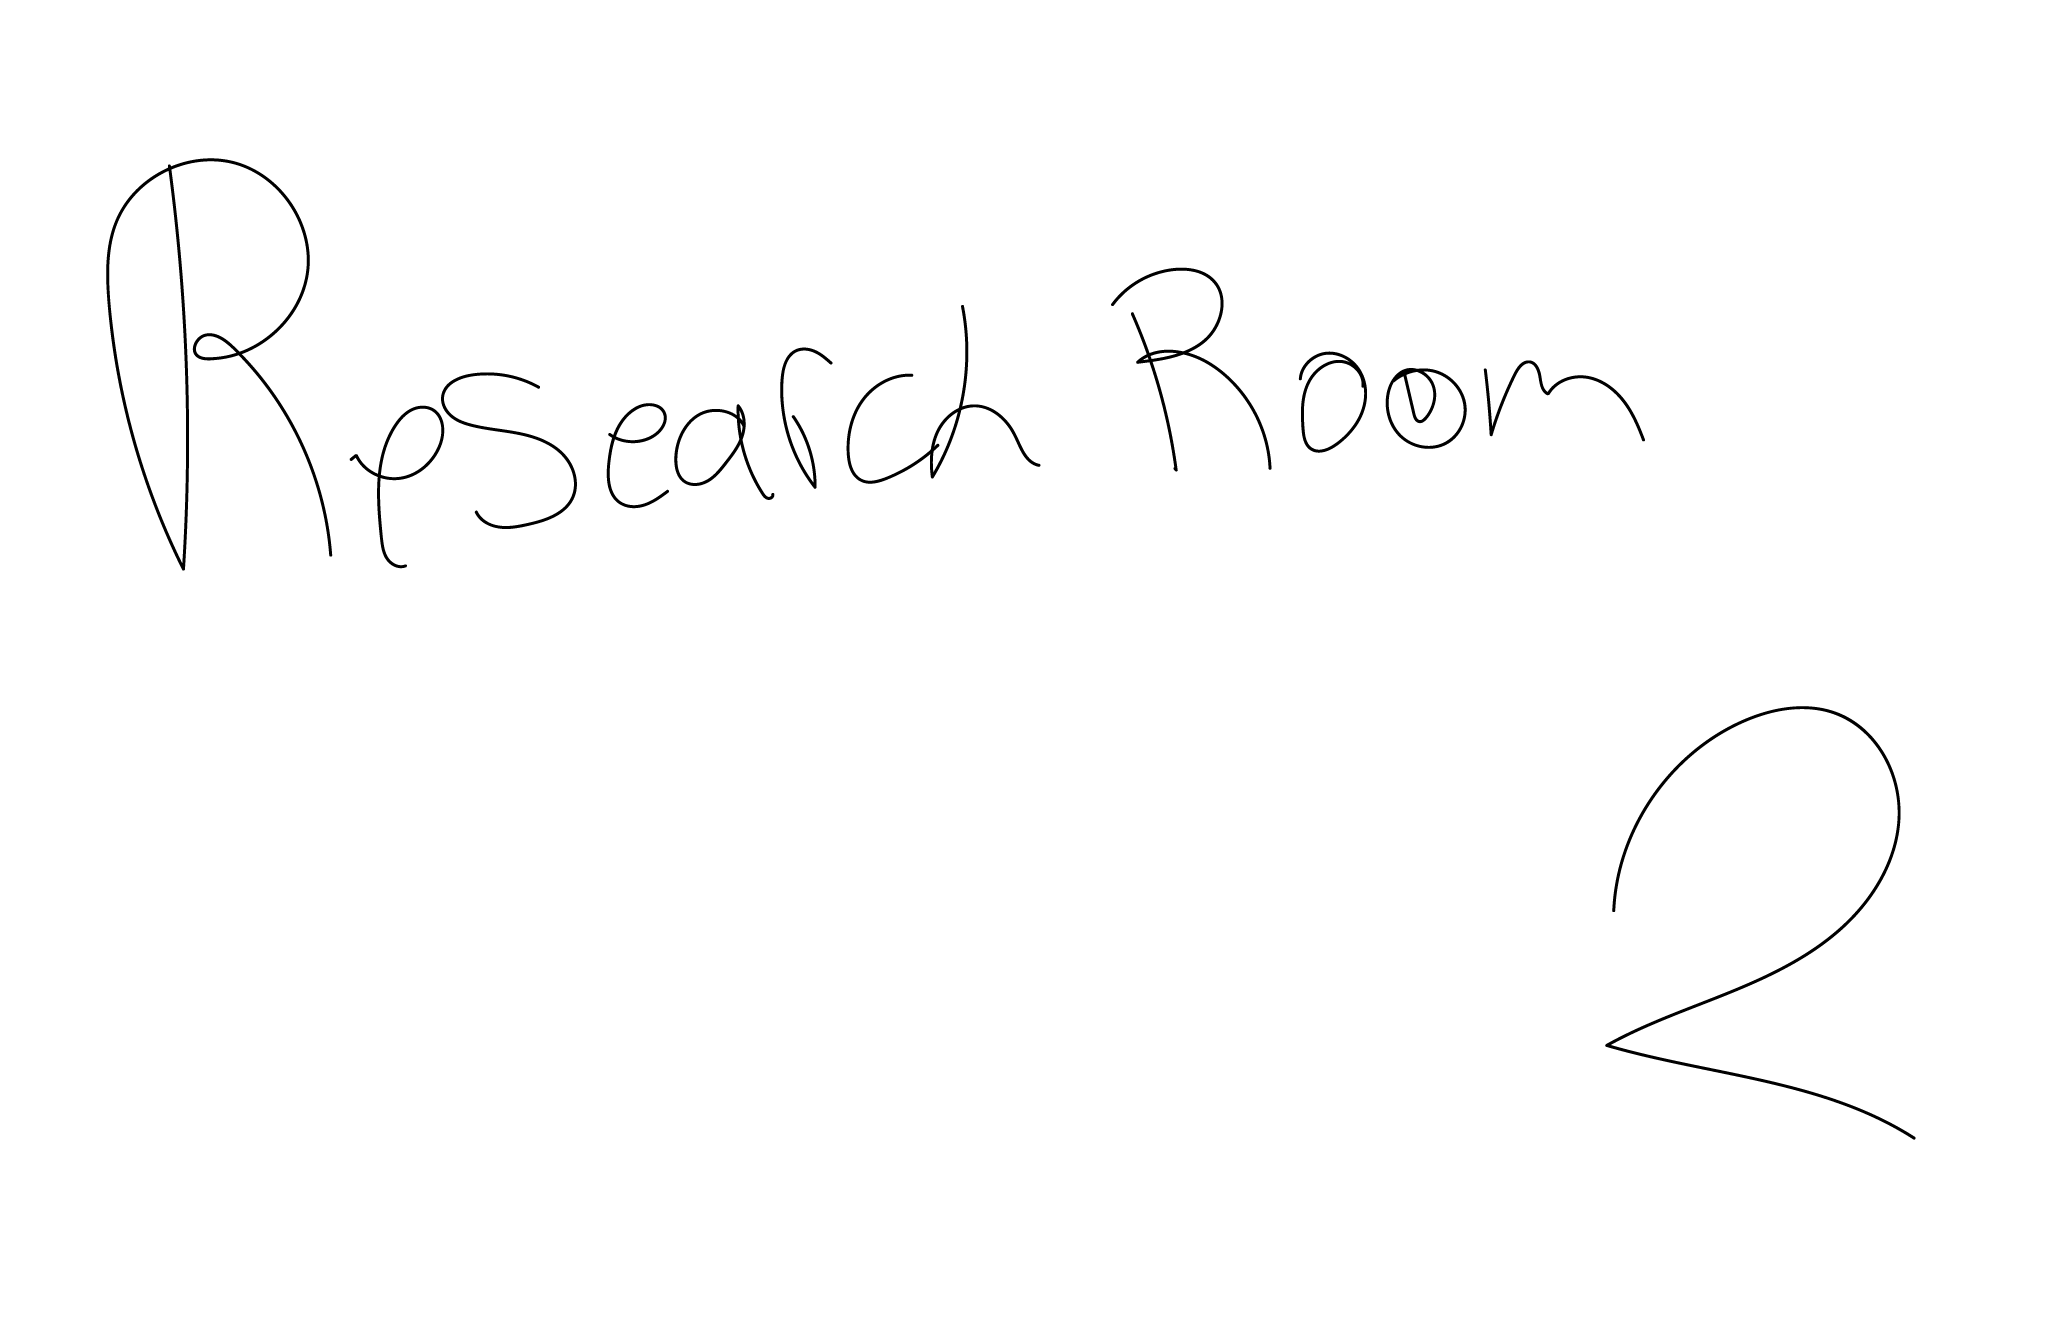 Research Room
2